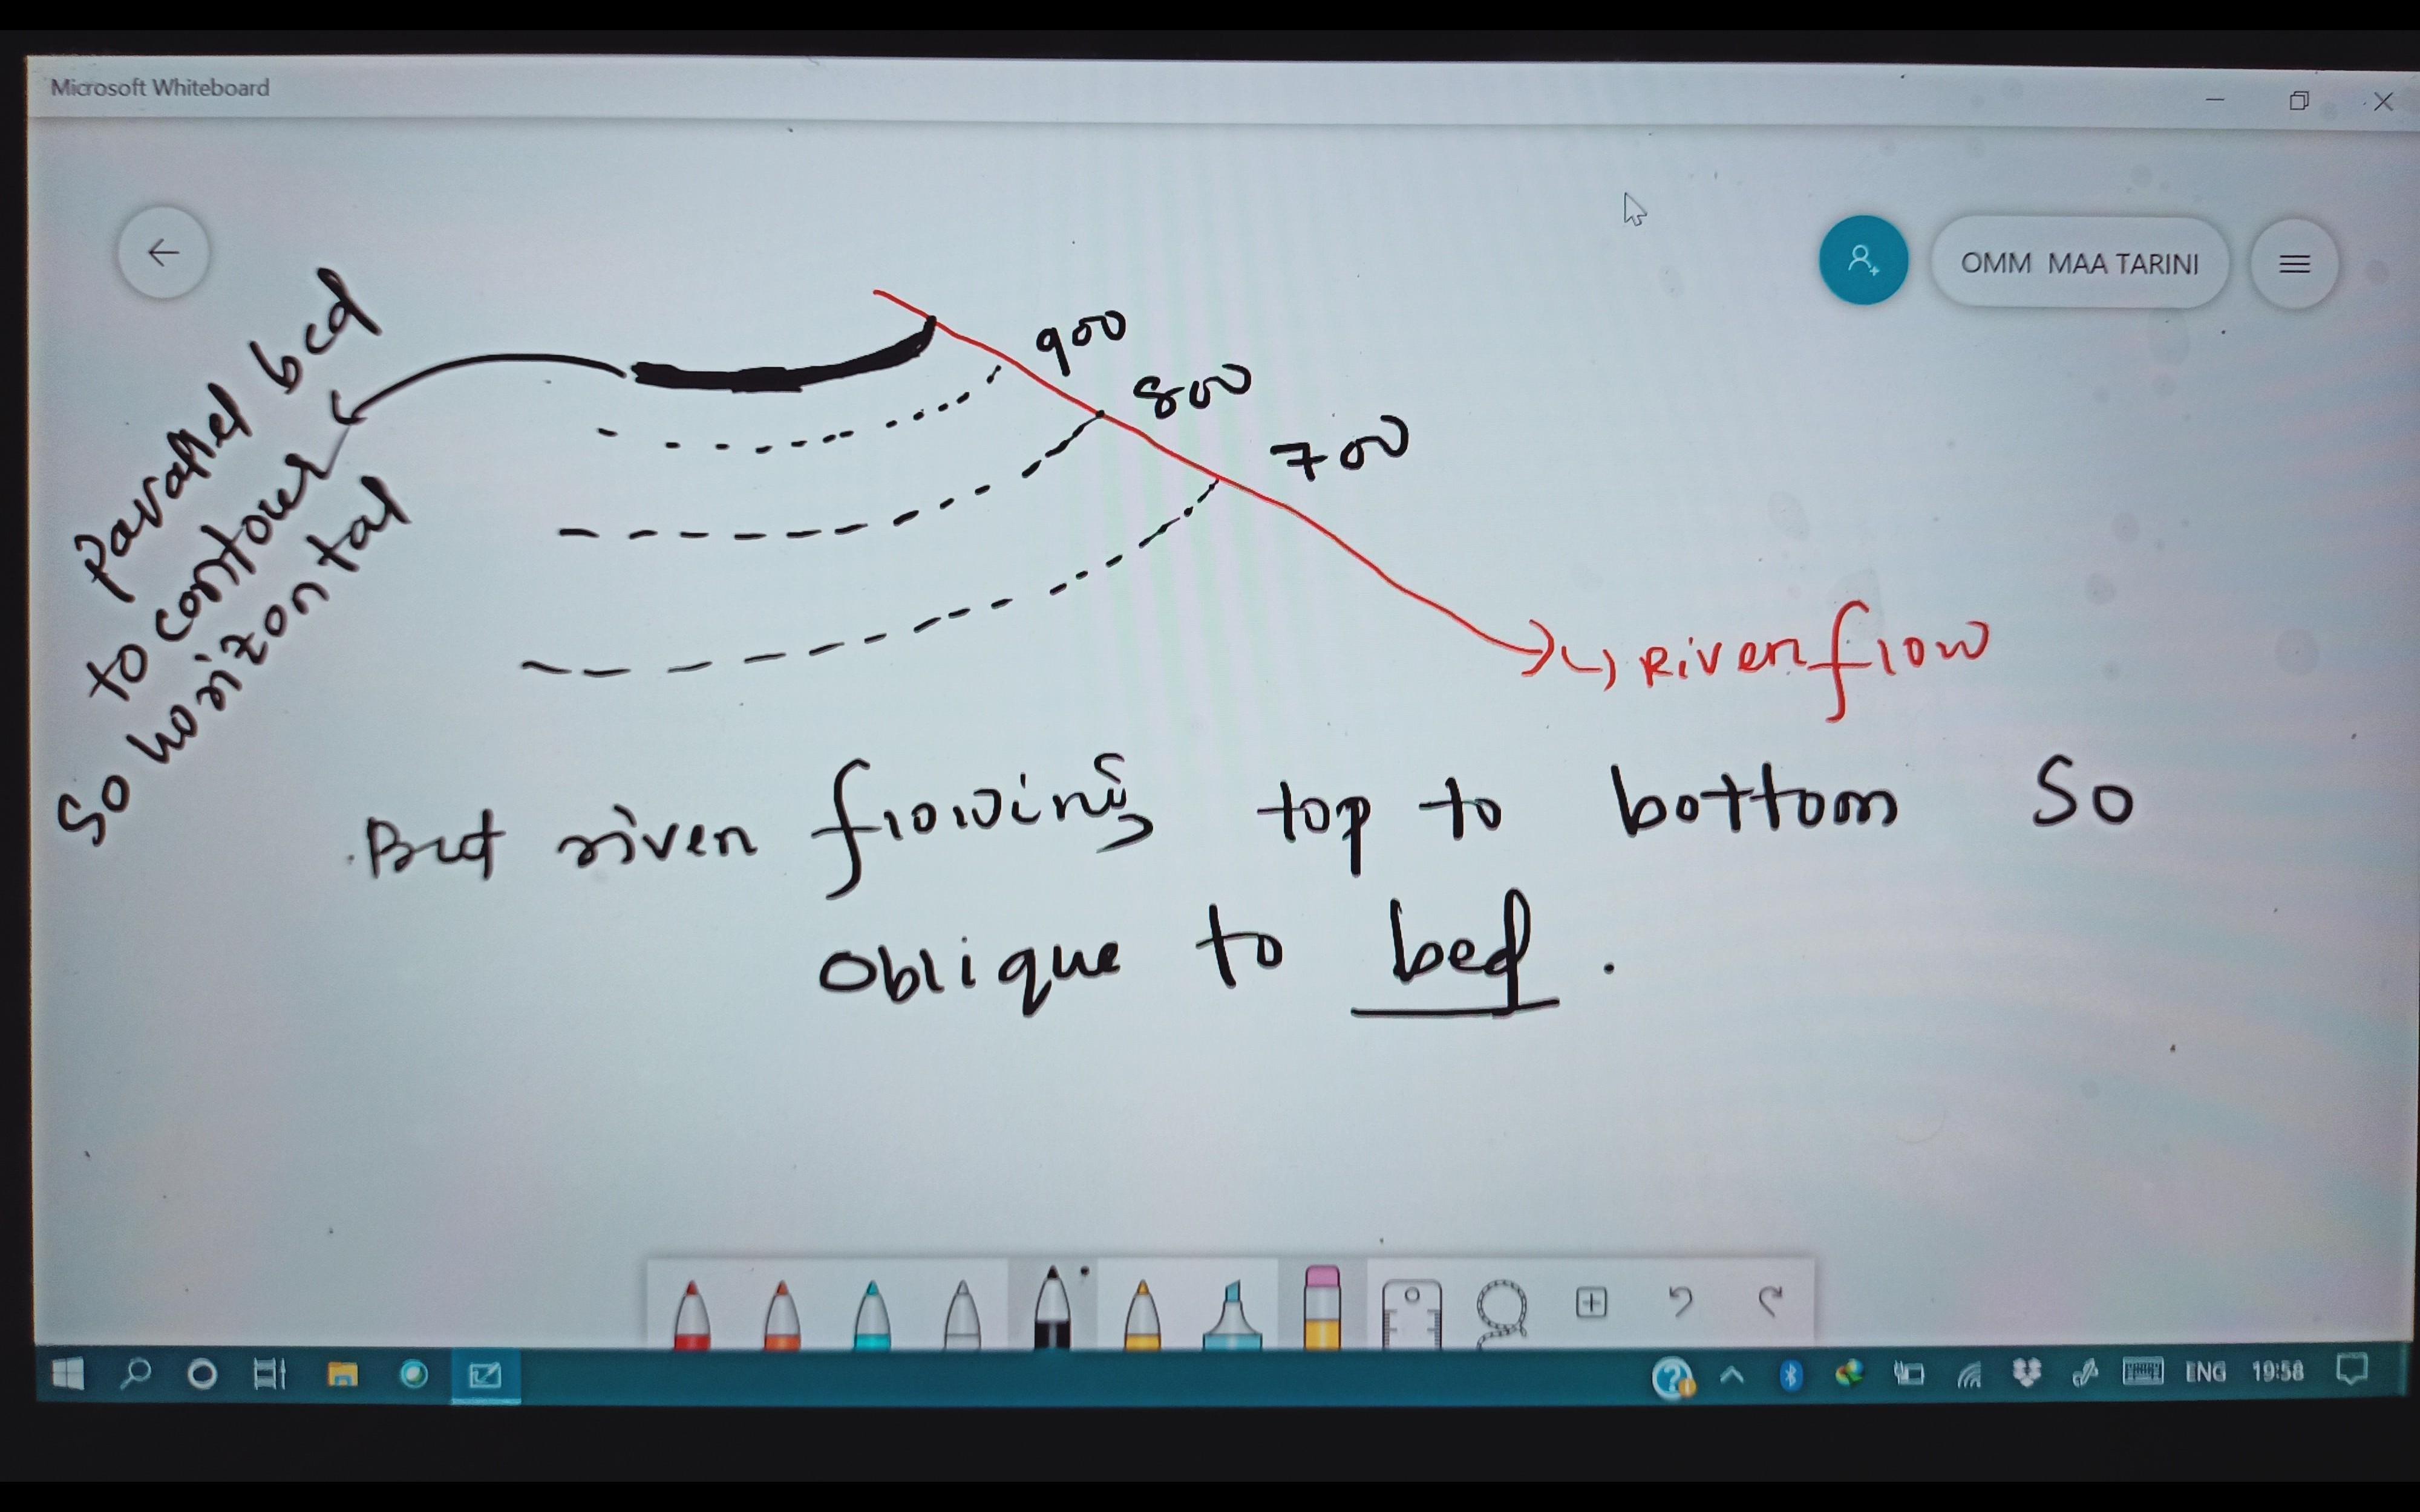 Microsoft Whiteboard
OMM MAA TARINI
Parallel bed
to contour
So horizontal
900
800
700
River flow
But river flowing top to bottom So
oblique to bed.
ENG 19:58